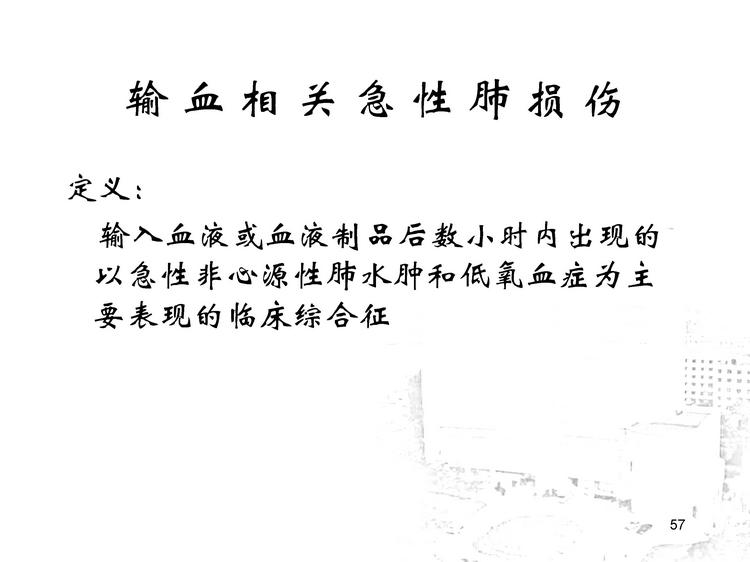 输血相关急性肺损伤
定义：
输入血液或血液制品后数小时内出现的
以急性非心源性肺水肿和低氧血症为主
要表现的临床综合征
57